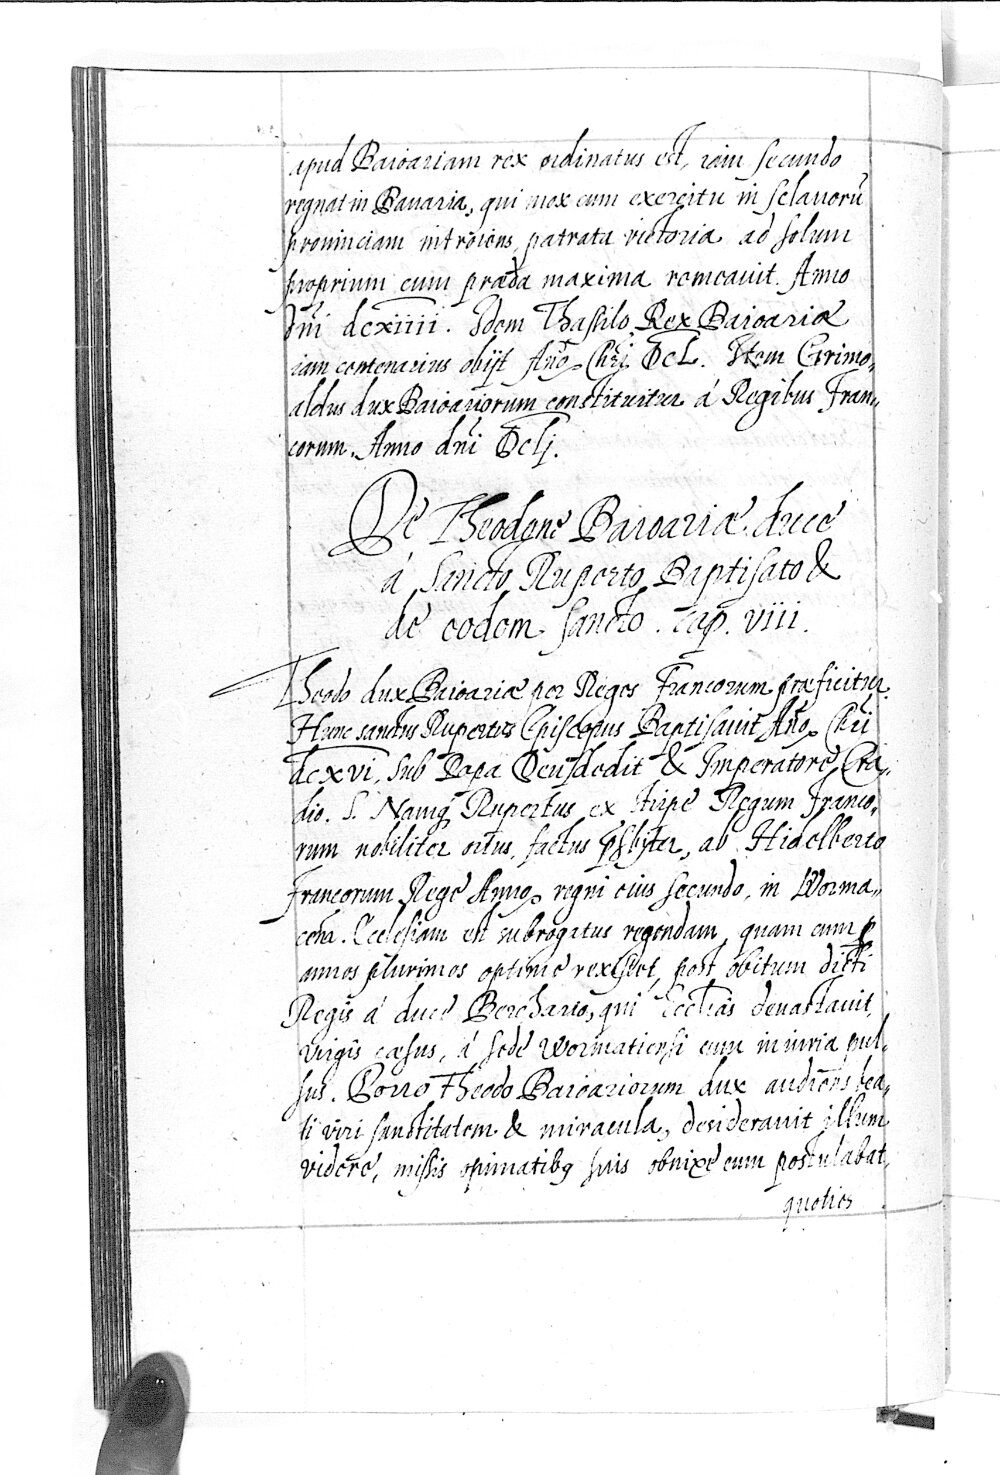 apud Baioariam rex ordinatus est, iam secundo
regnat in Bauaria, qui mox cum exercitu in sclauorū
prouinciam introiens, patrata victoria ad solum
proprium cum præda maxima remeauit. Anno
dñi dcxiiii. Idem Thassilo Rex Baioariæ
iam centenarius obijt Añō. Chri̅ DcL. Item Grimo-
aldus dux Baioariorum constituitur á Regibus Fran-
corum. Anno dñi Dclj.
De Theodone Baioariæ duce
á Sancto Ruperto Baptisato &
de eodem sancto. cap. viii.
Theodo dux Baioariæ per Reges Francorum præficitur.
Hunc sanctus Rupertus Episcopus Baptisauit Añō. Chri̅
dcxvi, sub Papa Deusdedit & Imperatore Era-
dio. S. Namq Rupertus ex stirpe Regum Franco-
rum nobiliter ortus, factus psbyter, ab Hidelberto
Francorum Rege Anno. regni eius secundo, in Worma-
ceñ. Ecclesiam est subrogatus regendam, quam cum p
annos plurimos optime rexisset, post obitum dicti
Regis á duce Berchario, qui Ecclias deuastauit,
virgis cæsus, á sede wormatiensi cum iniuria pul-
sus. Porro Theodo Baioariorum dux audiens bea-
ti viri sanctitatem & miracula, desiderauit illum
videre, missis opimatibq suis obnixe eum postulabat,
quoties